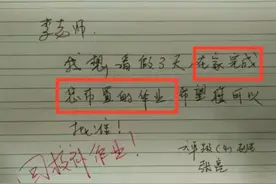 李老师
我想请假3天,在家完成
您布置的作业 希望您可以
批准!
回校补作业!
六年级(4)班
张亮